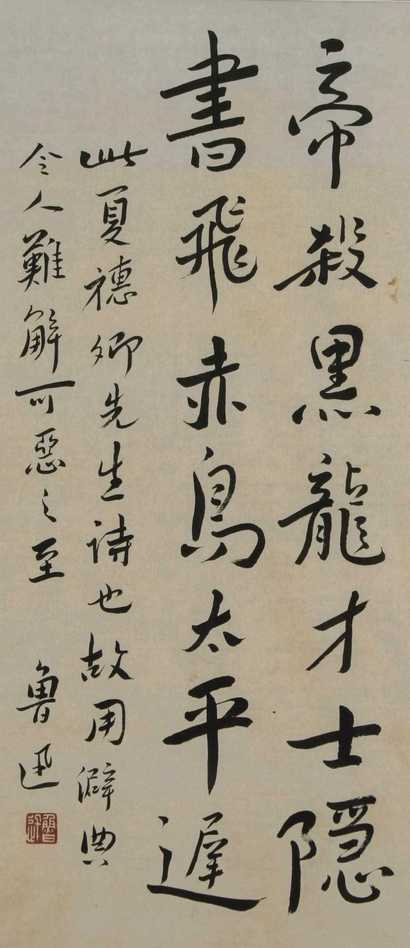 帝殺黑龍才士隱
書飛赤鳥太平遲
此夏穗卿先生詩也故用僻典
令人難解可惡之至
魯迅
魯迅